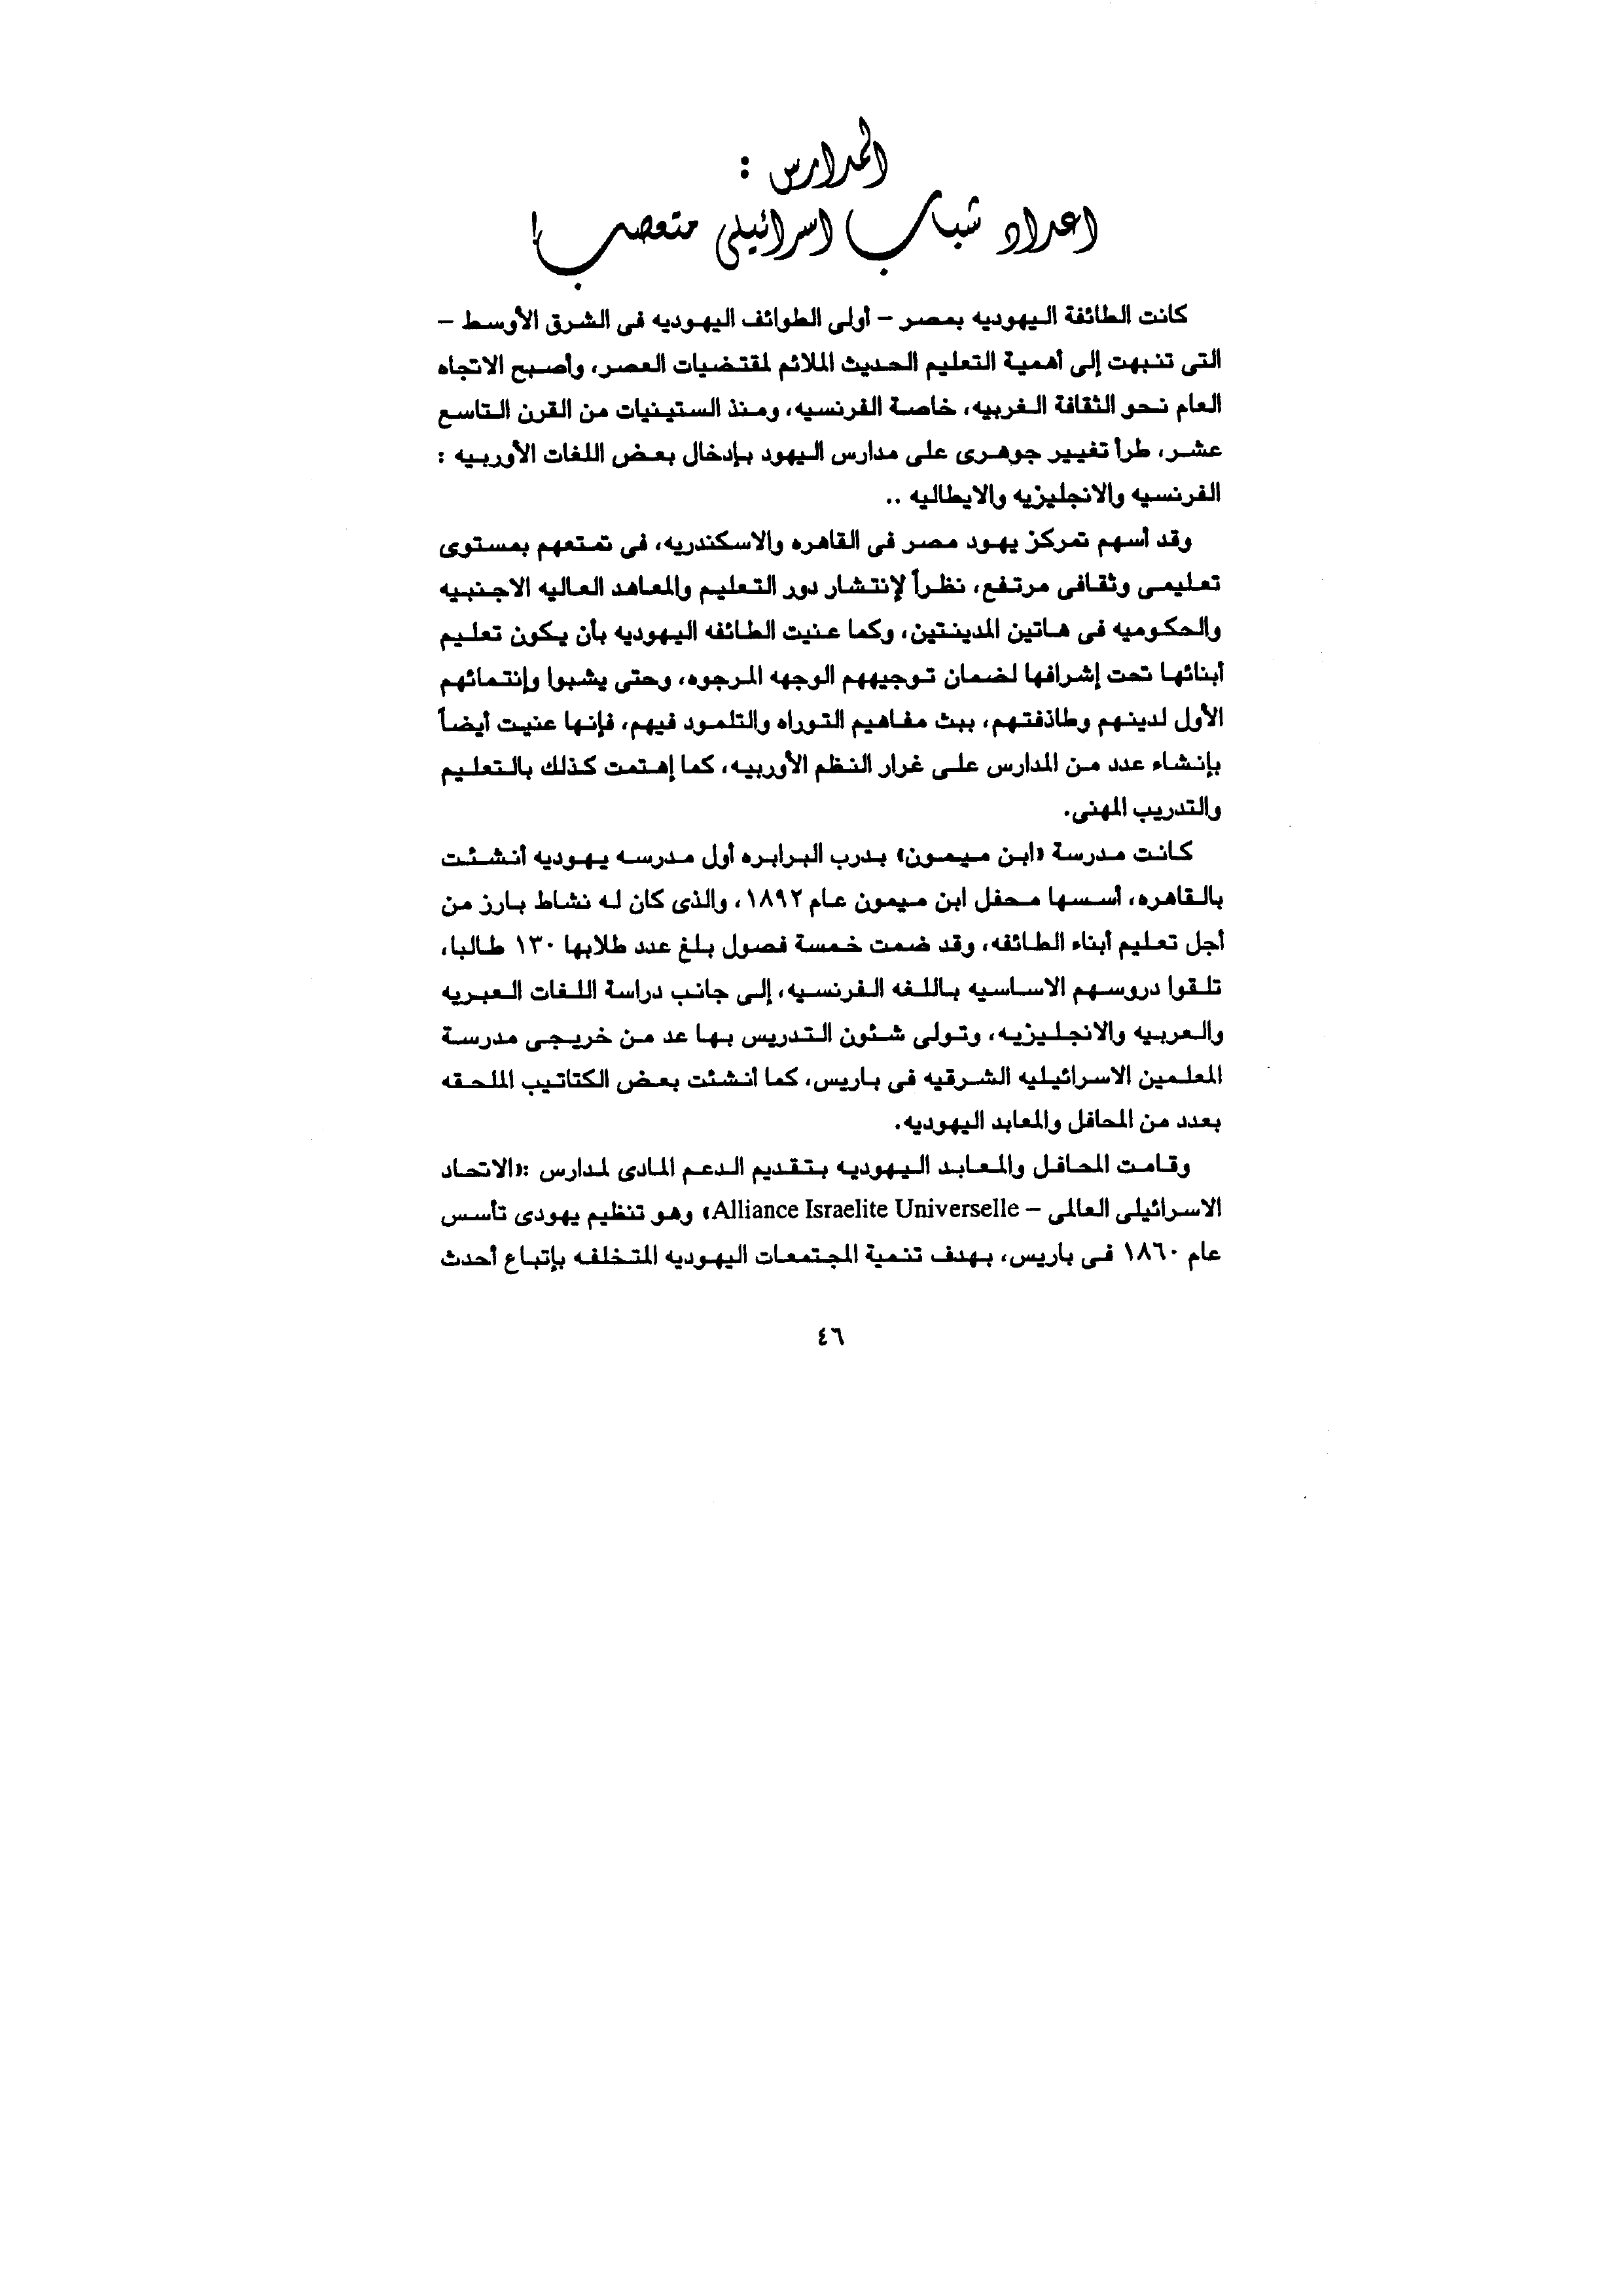 المدارس :
اعداد شباب اسرائيلى متعصب !
كانت الطائفة اليهوديه بمصر – أولى الطوائف اليهوديه فى الشرق الأوسط –
التى تنبهت إلى أهمية التعليم الحديث الملائم لمقتضيات العصر، وأصبح الاتجاه
العام نحو الثقافة الغربيه، خاصة الفرنسيه، ومنذ الستينيات من القرن التاسع
عشر، طرأ تغيير جوهرى على مدارس اليهود بإدخال بعض اللغات الأوربيه :
الفرنسيه والانجليزيه والايطاليه ..
وقد أسهم تمركز يهود مصر فى القاهره والاسكندريه، فى تمتعهم بمستوى
تعليمى وثقافى مرتفع، نظراً لإنتشار دور التعليم والمعاهد العاليه الاجنبيه
والحكوميه فى هاتين المدينتين، وكما عنيت الطائفه اليهوديه بأن يكون تعليم
أبنائها تحت إشرافها لضمان توجيههم الوجهه المرجوه، وحتى يشبوا وإنتمائهم
الأول لدينهم وطاذفتهم، ببث مفاهيم التوراه والتلمود فيهم، فإنها عنيت أيضاً
بإنشاء عدد من المدارس على غرار النظم الأوربيه، كما إهتمت كذلك بالتعليم
والتدريب المهنى.
كانت مدرسة «ابن ميمون» بدرب البرابره أول مدرسه يهوديه أنشئت
بالقاهره، أسسها محفل ابن ميمون عام ١٨٩٢، والذى كان له نشاط بارز من
أجل تعليم أبناء الطائفه، وقد ضمت خمسة فصول بلغ عدد طلابها ١٣٠ طالبا،
تلقوا دروسهم الاساسيه باللغه الفرنسيه، إلى جانب دراسة اللغات العبريه
والعربيه والانجليزيه، وتولى شئون التدريس بها عد من خريجى مدرسة
المعلمين الاسرائيليه الشرقيه فى باريس، كما أنشئت بعض الكتاتيب الملحقه
بعدد من المحافل والمعابد اليهوديه.
وقامت المحافل والمعابد اليهوديه بتقديم الدعم المادى لمدارس :«الاتحاد
الاسرائيلى العالمى – Alliance Israelite Universelle» وهو تنظيم يهودى تأسس
عام ١٨٦٠ فى باريس، بهدف تنمية المجتمعات اليهوديه المتخلفه بإتباع أحدث
٤٦